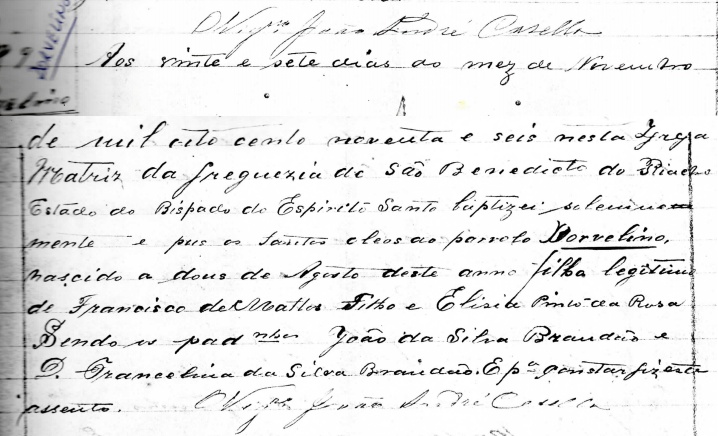 O Vigrº João André Casella
Dorvelino
Aos vinte e sete dias do mez de Novembro
de mil oito cento noventa e seis nesta Igrja
Matriz da freguezia de São Benedicto do Riacho
Estado do Bispado do Espirito Santo baptizei solemne
mente e pus os Santos oleos ao parvolo Dorvelino,
nascido a dous de Agosto deste anno filho legitimo
de Francisco de Mattos Filho e Elisia Pinto da Rosa
Sendo os padnhos João da Silva Brandão e
D. Francelina da Silva Brandão. E pª constar fiz este
assento. O Vigrº João André Casella